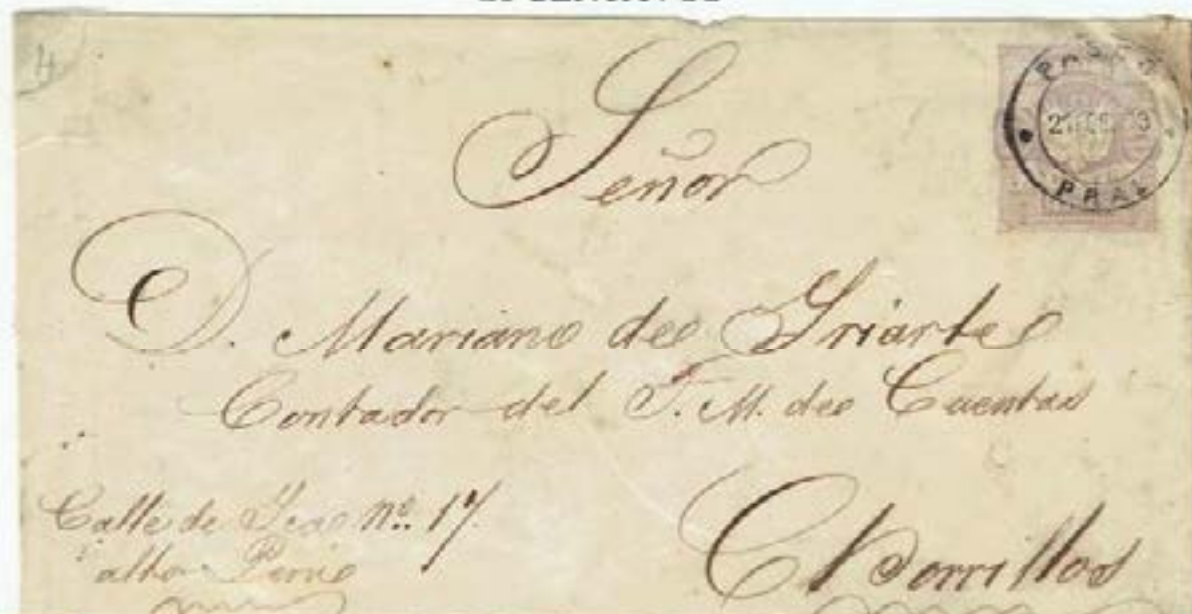 4
Señor
D. Mariano de Iriarte
Contador del T. M. de Cuentas
Calle de nº. 17
altos
Chorrillos
PRAL